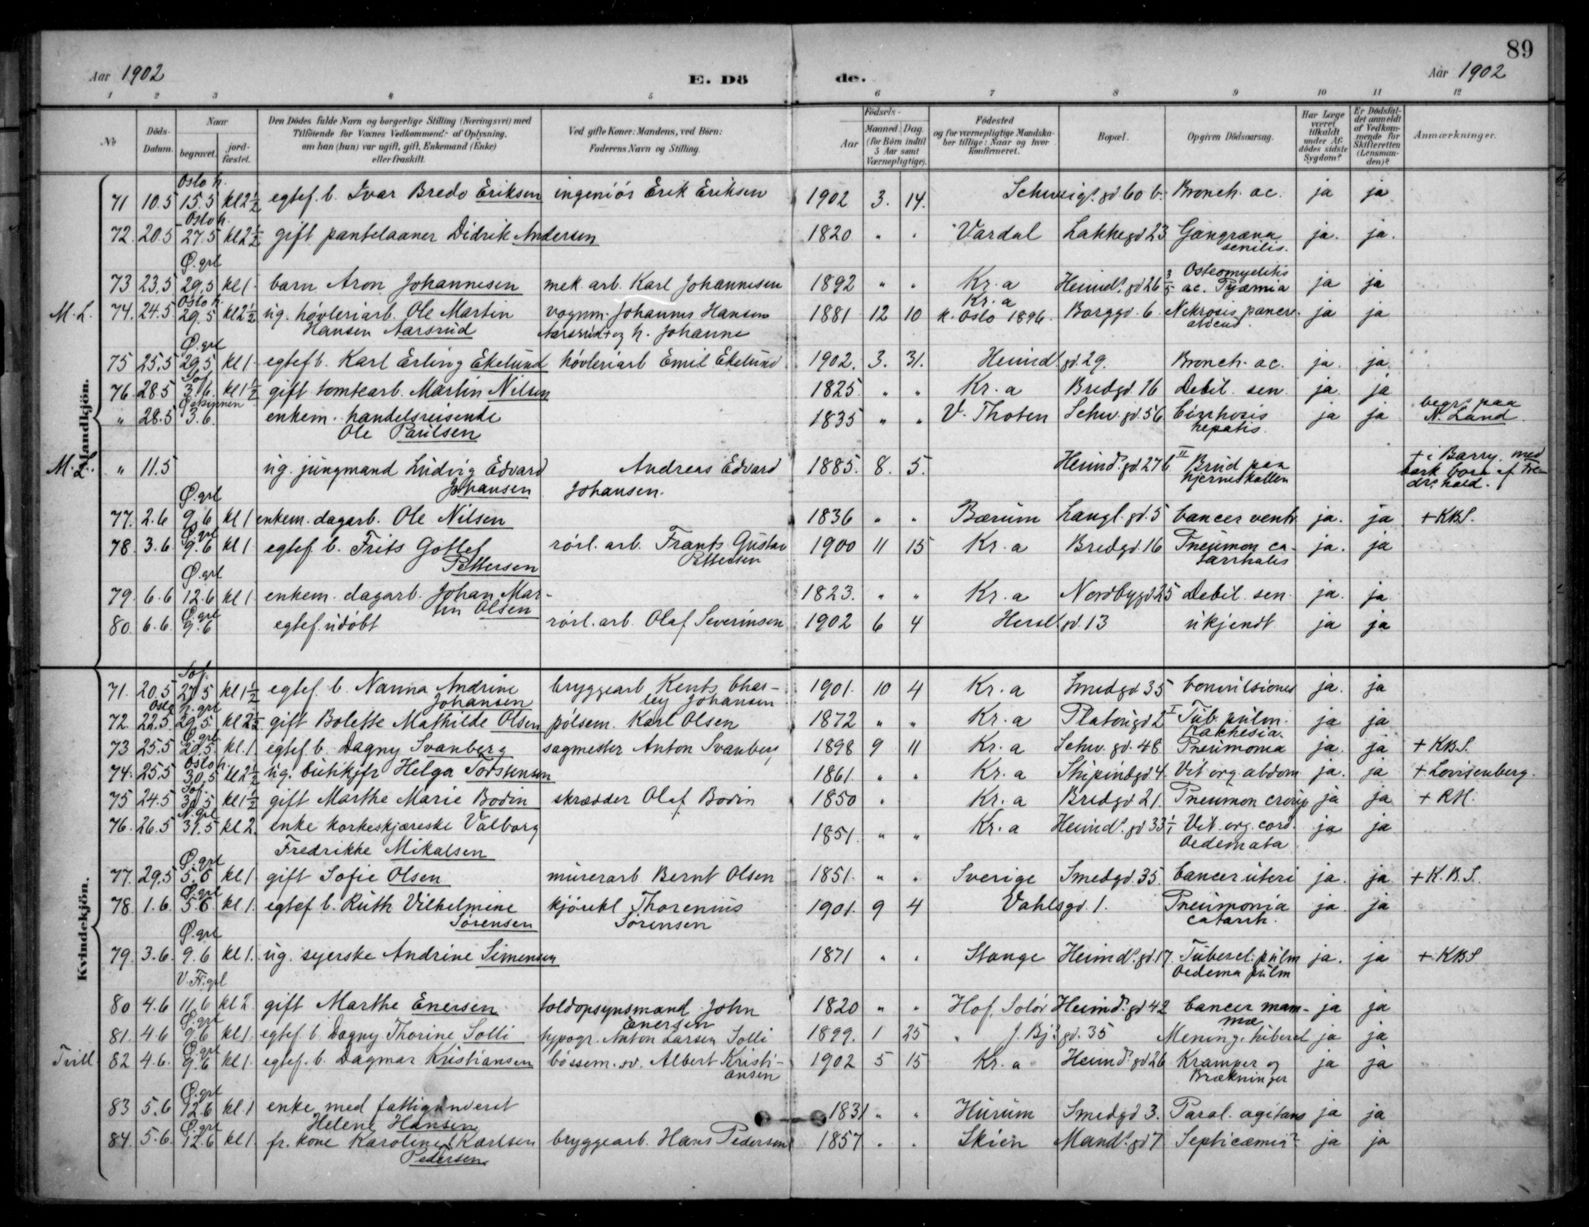 89
Aar 1902 E. Dö de. Aar 1902
1 2 3 4 5 6 7 8 9 10 11 12
№ Döds-Datum. Naar begravet. jordfæstet. Den Dödes fulde Navn og borgerlige Stilling (Næringsvei) med Tilföiende for Voxnes Vedkommende af Oplysning, om han (hun) var ugift, gift, Enkemand (Enke) eller fraskilt. Ved gifte Koner: Mandens, ved Börn: Faderens Navn og Stilling. Födsels- Aar Maaned. Dag. (for Börn indtil 5 Aar samt Værnepligtige). Födested og for værnepligtige Mandskaber tillige: Naar og hvor konfirmeret. Bopæl. Opgiven Dödsaarsag. Har Læge været tilkaldt under Afdödes sidste Sygdom? Er Dödsfaldet anmeldt af Vedkommende for Skifteretten (Lensmanden)? Anmærkninger.
Mandkjön.
Oslo k.
71 10.5 15.5 kl 2½ egtef. b. Ivar Bredo Eriksen ingeniör Erik Eriksen 1902 3. 14. Schweigs. gd 60 b. Bronch. ac. ja ja
Oslo k.
72. 20.5 27.5 kl 2½ gift pantelaaner Didrik Andersen 1820 " " Vardal Lakkegd 23 Gangræna ja. ja.
senilis.
Ø. grl
73 23.5 29.5 kl 1. barn Aron Johannesen mek arb. Karl Johannesen 1892 " " Kr.a Heimd. gd 26 Osteomyelitis ac. Pyæmia ja ja
Oslo k.
M.L. 74. 24.5 29.5 kl 2½ ug. høvleriarb. Ole Martin vognm. Johannes Hansen 1881 12 10 Kr.a k. Oslo 1896. Borggd. 6. Nekrosis pancr. ja ja
Hansen Aarsrud Aarsrud og h. Johanne
Ø. grl
75 25.5 29.5 kl 1. egtef b. Karl Erling Ekelund høvleriarb Emil Ekelund 1902. 3. 31. Heimd. gd 29. Bronch. ac. ja. ja
Sof.
76 28.5 3.6. kl 1½ gift tomtearb. Martin Nilsen 1825. " " Kr.a Bredgd 16 Debil. sen. ja. ja
" 28.5 3.6. enkem. handelsreisende 1835 " " V. Thoten Schw. gd. 56 Cirrhosis ja ja begr. paa
Ole Paulsen hepatis. N. Land.
M.L. " 11.5 ug. jungmand Ludvig Edvard Andreas Edvard 1885. 8. 5. Heimd. gd 27 b II Brud paa + i Barry med
Johansen Johansen. hjerneskallen bark
Ø. grl
77. 2.6 9.6 kl 1 enkem. dagarb. Ole Nilsen 1836 " " Bærum Langl. gd. 5 Cancer ventr. ja. ja + KBS.
Ø. grl
78. 3.6 9.6 kl 1 egtef b. Frits Gotlef rörl. arb. Frants Gustav 1900 11 15 Kr.a Bredgd 16 Pneumon ca- ja. ja
Pettersen Pettersen tarrhalis
Ø. grl
79. 6.6 12.6 kl 1. enkem. dagarb. Johan Mar- 1823. " " Kr.a Nordbygd 25 Debil. sen. ja. ja
tin Olsen
Ø. grl
80 6.6. 9.6 egtef. udøbt rörl. arb. Olaf Severinsen 1902 6 4 Hersl. gd 13 ukjendt ja ja
Kvindekjön.
Sof.
71. 20.5 27.5 kl 1½ egtef. b. Nanna Andrine bryggearb Kents Char- 1901. 10 4 Kr.a Smedgd 35 Convulsiones ja. ja
Johansen ley Johansen
Oslo k. grl
72 22.5 29.5 kl 2½ gift Bolette Mathilde Olsen pölsem. Karl Olsen 1872 " " Kr.a Platougd 2 Tub. pulm. ja ja
Kachesia.
Ø. grl
73 25.5 29.5 kl. 1. egtef b. Dagny Svanberg sagmester Anton Svanberg 1898 9 11 Kr.a Schw. gd. 48 Pneumonia ja. ja + KBS.
Oslo k.
74. 25.5 30.5 kl 2½ ug. butikjfr Helga Torstensen 1861. " " Kr.a Stupindgd 4. Vit org. abdom ja. ja + Lovisenberg.
Sof.
75 24.5 30.5 kl 1½ gift Marthe Marie Bodin skrædder Olaf Bodin 1850 " " Kr.a Bredgd 21. Pneumon. croup ja ja + RH.
N. grl
76. 26.5 31.5 kl 2. enke korkeskjæreske Valborg 1851. " " Kr.a Heimd. gd 33 Vit. org. cord. ja ja
Fredrikke Mikalsen Oedemata.
Ø. grl
77. 29.5 5.6 kl 1. gift Sofie Olsen murerarb Bernt Olsen 1851. " " Sverige Smedgd. 35. Cancer uteri ja. ja + K.B.S.
Ø. grl
78 1.6 5.6 kl 1. egtef b. Ruth Vilhelmine kjörekl Thorenius 1901. 9 4 Vahlsgd. 1. Pneumonia ja. ja
Sørensen Sørensen catarrh.
Ø. grl
79. 3.6. 9.6 kl 1. ug. syerske Andrine Simensen 1871 " " Stange Heimd. gd 17. Tubercl. pulm ja. ja + KBS
Oedema pulm
V. Fr. grl
80 4.6 11.6 kl 2. gift Marthe Enersen toldopsynsmand John 1820 " " Hof Solör Heimd. gd 42 Cancer mam- ja ja
Enersen mæ
Ø. grl
81. 4.6 9.6 kl 1. egtef. b. Dagny Thorine Solli typogr. Anton Larsen Solli 1899. 1 25 " J. Bj. gd. 35 Mening. tubercl ja ja
Ø. grl
Tvill 82 4.6. 9.6 kl 1. egtef. b. Dagmar Kristiansen bössem. sv. Albert Kristi- 1902 5 15 Kr.a Heimd. gd 26 Kramper og ja ja
ansen Brækninger
Ø. grl
83 5.6 12.6 kl. 1 enke med fattigunderst 1831 " " Hurum Smedgd 3. Paral. agitans ja ja
Helene Hansen
Ø. grl
84 5.6. 12.6 kl 1. fr. kone Karoline Karlsen bryggearb. Hans Pedersen 1857 " " Skien Mands. gd 7 Septicæmi ja ja
Pedersen